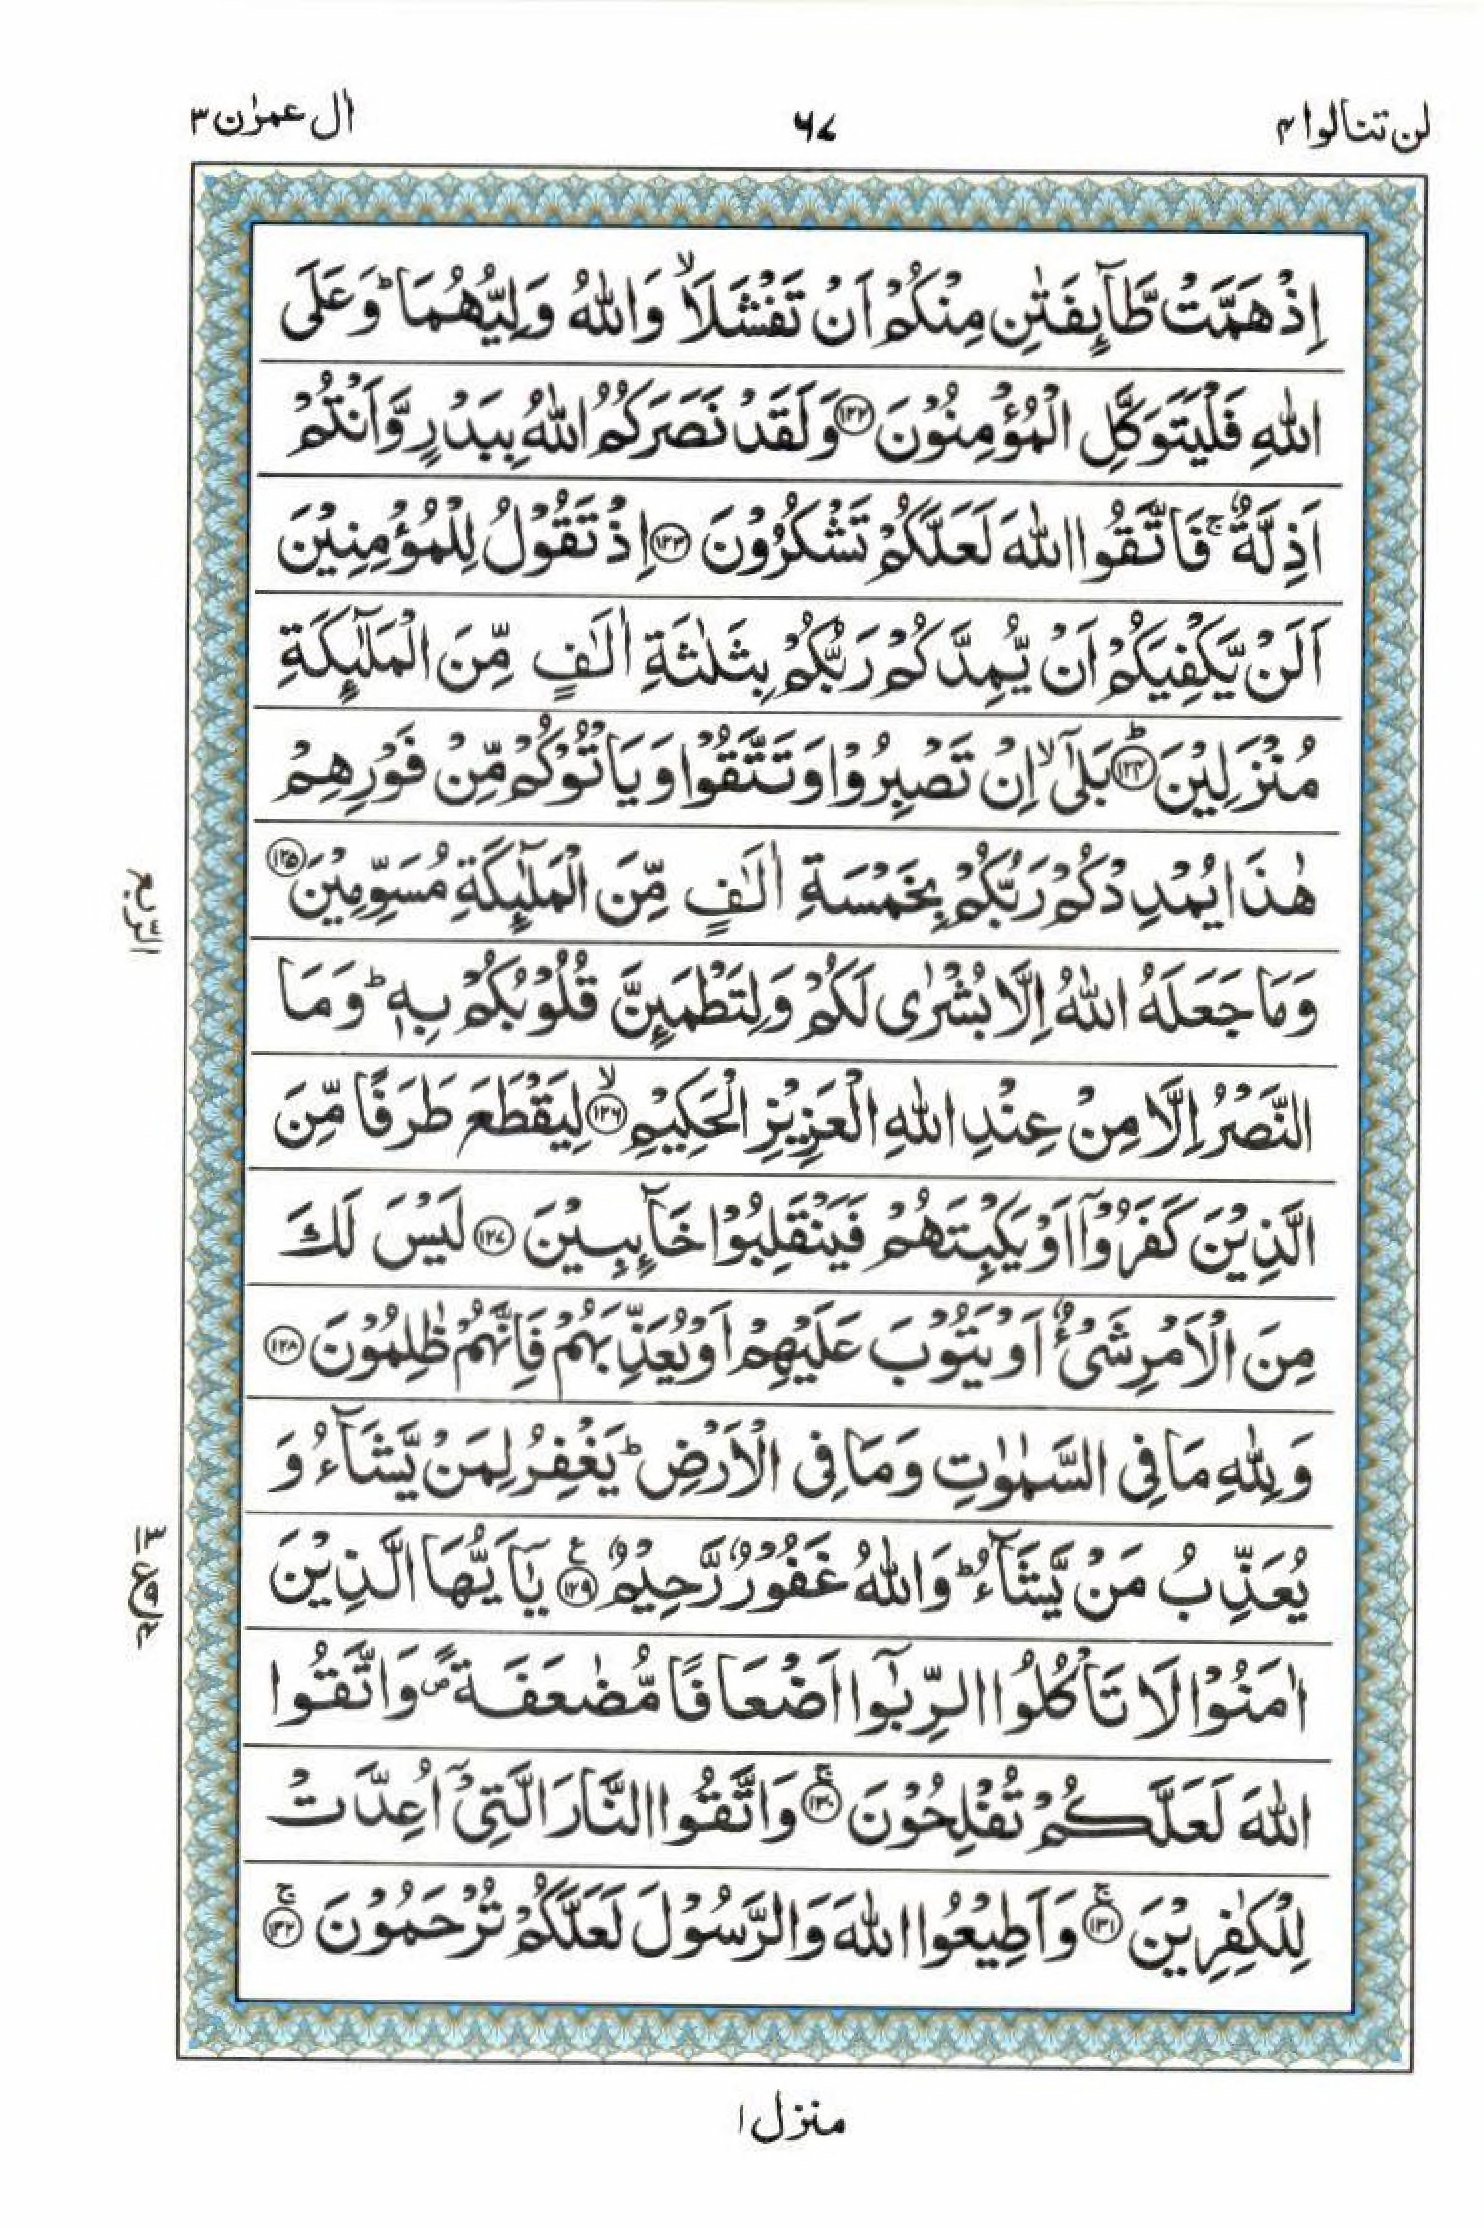 لن تنالوا ۴ ۶۷ اٰل عمرٰن ۳
اِذْ هَمَّتْ طَّآىِٕفَتٰنِ مِنْكُمْ اَنْ تَفْشَلَا ۙ وَاللّٰهُ وَلِيُّهُمَا ؕ وَعَلَى
اللّٰهِ فَلْيَتَوَكَّلِ الْمُؤْمِنُوْنَ ﴿۱۲۲﴾ وَلَقَدْ نَصَرَكُمُ اللّٰهُ بِبَدْرٍ وَّاَنْتُمْ
اَذِلَّةٌ ۚ فَاتَّقُوا اللّٰهَ لَعَلَّكُمْ تَشْكُرُوْنَ ﴿۱۲۳﴾ اِذْ تَقُوْلُ لِلْمُؤْمِنِيْنَ
اَلَنْ يَّكْفِيَكُمْ اَنْ يُّمِدَّكُمْ رَبُّكُمْ بِثَلٰثَةِ اٰلٰفٍ مِّنَ الْمَلٰٓىِٕكَةِ
مُنْزَلِيْنَ ﴿۱۲۴﴾ؕ بَلٰٓى ۙ اِنْ تَصْبِرُوْا وَتَتَّقُوْا وَيَاْتُوْكُمْ مِّنْ فَوْرِهِمْ
هٰذَا يُمْدِدْكُمْ رَبُّكُمْ بِخَمْسَةِ اٰلٰفٍ مِّنَ الْمَلٰٓىِٕكَةِ مُسَوِّمِيْنَ ﴿۱۲۵﴾
الرّبع
وَمَا جَعَلَهُ اللّٰهُ اِلَّا بُشْرٰى لَكُمْ وَلِتَطْمَىِٕنَّ قُلُوْبُكُمْ بِهٖ ؕ وَمَا
النَّصْرُ اِلَّا مِنْ عِنْدِ اللّٰهِ الْعَزِيْزِ الْحَكِيْمِ ﴿۱۲۶﴾ۙ لِيَقْطَعَ طَرَفًا مِّنَ
الَّذِيْنَ كَفَرُوْٓا اَوْ يَكْبِتَهُمْ فَيَنْقَلِبُوْا خَآىِٕبِيْنَ ﴿۱۲۷﴾ لَيْسَ لَكَ
مِنَ الْاَمْرِ شَىْءٌ اَوْ يَتُوْبَ عَلَيْهِمْ اَوْ يُعَذِّبَهُمْ فَاِنَّهُمْ ظٰلِمُوْنَ ﴿۱۲۸﴾
وَلِلّٰهِ مَا فِى السَّمٰوٰتِ وَمَا فِى الْاَرْضِ ؕ يَغْفِرُ لِمَنْ يَّشَآءُ وَ
يُعَذِّبُ مَنْ يَّشَآءُ ؕ وَاللّٰهُ غَفُوْرٌ رَّحِيْمٌ ﴿۱۲۹﴾ۧ يٰٓاَيُّهَا الَّذِيْنَ
اٰمَنُوْا لَا تَاْكُلُوا الرِّبٰٓوا اَضْعَافًا مُّضٰعَفَةً ۪ وَاتَّقُوا
اللّٰهَ لَعَلَّكُمْ تُفْلِحُوْنَ ﴿۱۳۰﴾ۚ وَاتَّقُوا النَّارَ الَّتِىْٓ اُعِدَّتْ
لِلْكٰفِرِيْنَ ﴿۱۳۱﴾ۚ وَاَطِيْعُوا اللّٰهَ وَالرَّسُوْلَ لَعَلَّكُمْ تُرْحَمُوْنَ ﴿۱۳۲﴾ۚ
منزل ۱